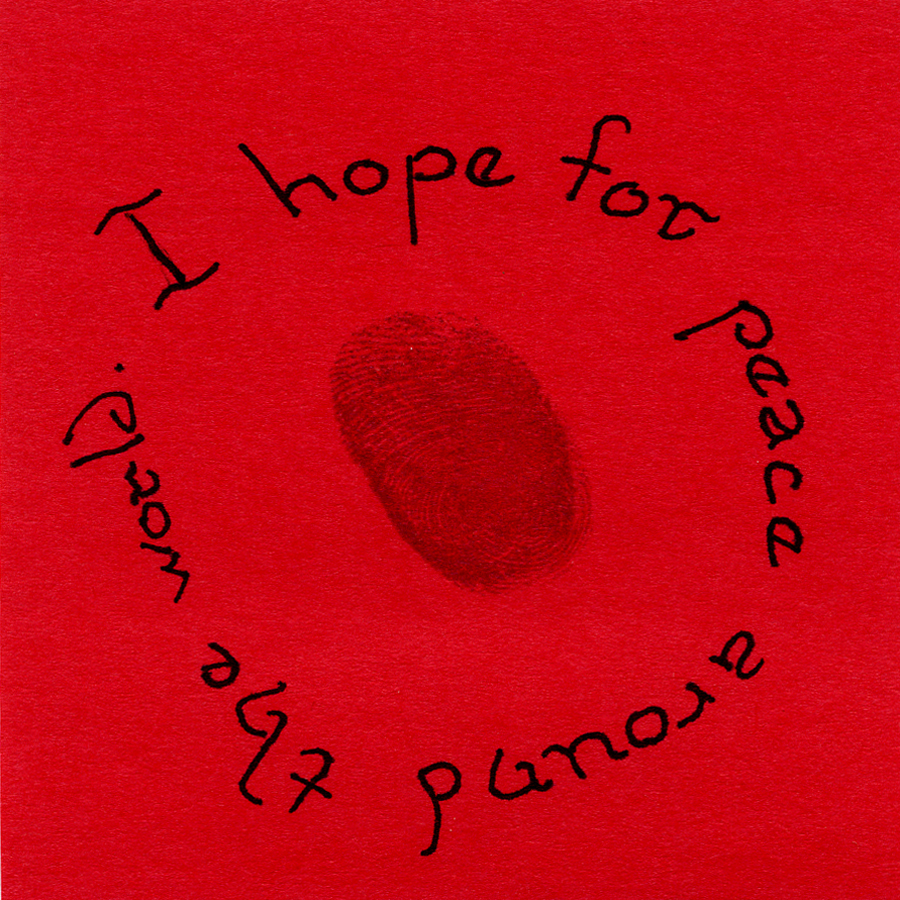 I hope for peace around the world.